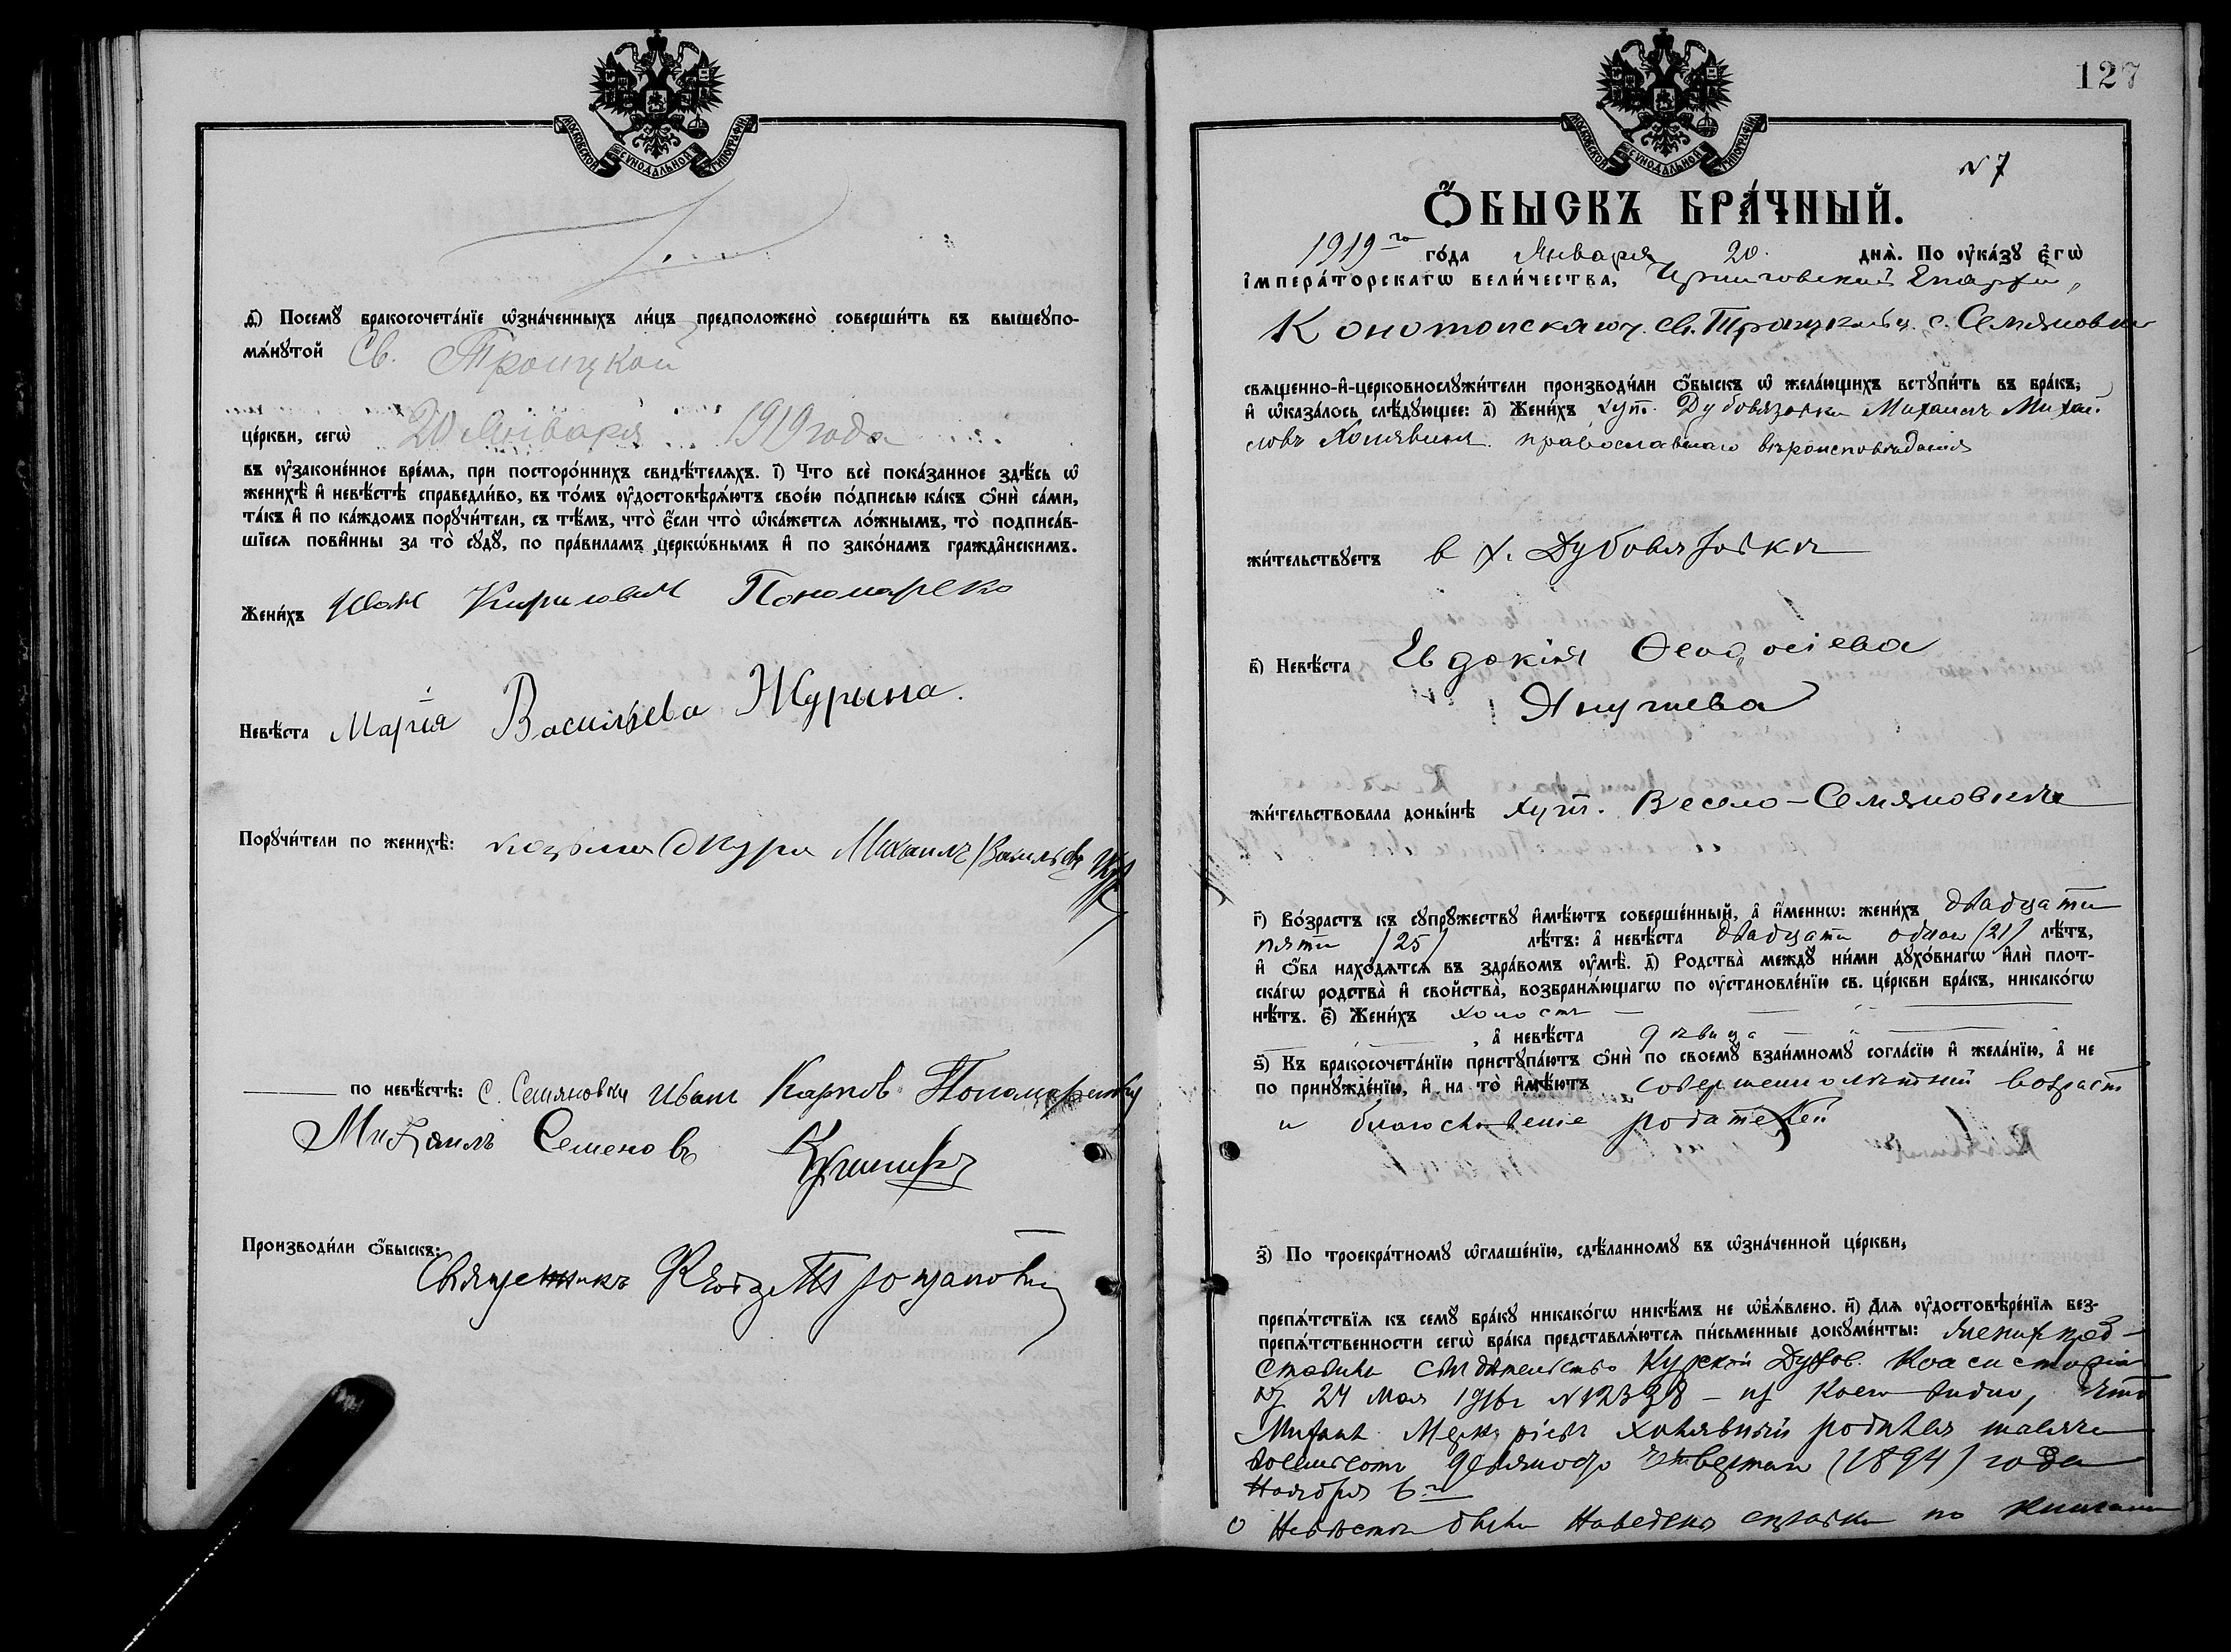 МОСКОВСКОЙ СѴНОДАЛЬНОЙ ТИПОГРАФІИ
д҃) Посемꙋ̀ бракосочета́нїе ѡ҆зна́ченныхъ ли́цъ предположено̀ соверши́ть въ вышеꙋпо-
мѧ́нꙋтой Св. Троицкой
це́ркви, сегѡ̀ 20 Января 1919 года
въ оу҆законе́нное вре́мѧ, при посторо́ннихъ свидѣ́телѧхъ. і҃) Что всѐ пока́занное здѣ́сь ѡ҆
женихѣ̀ и҆ невѣ́стѣ справедли́во, въ то́мъ оу҆достовѣрѧ́ютъ свое́ю по́дписью ка́къ ѻ҆нѝ са́ми,
та́къ и҆ по ка́ждомъ порꙋчи́тели, съ тѣ́мъ, что̀ є҆́сли что̀ ѡ҆ка́жетсѧ ло́жнымъ, то̀ подписа́в-
шїесѧ пови́нны за то̀ сꙋдꙋ̀, по пра́виламъ церко́внымъ и҆ по зако́намъ гражда́нскимъ.
Жени́хъ Иван Кирилович Пономаренко
Невѣ́ста Марія Васильева Журина.
Порꙋчи́тели по женихѣ̀: Михаилъ Васильевъ
по невѣ́стѣ: с. Семяновки Иван Карпов Пономаренко
Михаилъ Семеновъ
Производи́ли ѻ҆́быскъ:
Священникъ
127
МОСКОВСКОЙ СѴНОДАЛЬНОЙ ТИПОГРАФІИ
N 7
Ѻ҆́БЫСКЪ БРА́ЧНЫЙ.
1919 го го́да Января 20. днѧ̀. По оу҆ка́зꙋ є҆гѡ̀
і҆мпера́торскагѡ вели́чества, Черниговской Епархіи,
Конотопскаго у. Св. Троицкой ц. с. Семяновки
свѧще́нно-и҆-церковнослꙋжи́тели производи́ли ѻ҆́быскъ ѡ҆ жела́ющихъ встꙋпи́ть въ бра́къ,
и҆ ѡ҆каза́лось слѣ́дꙋющее: а҃) Жени́хъ хут. Дубовязовки Михаилъ Михай-
ловъ православнаго вѣроисповѣданія
жи́тельствꙋетъ в х. Дубовязовкѣ
в҃) Невѣ́ста Евдокія Ѳеодосіева
Янушева
жи́тельствовала доны́нѣ хут. Весело-Семяновкѣ
г҃) Во́зрастъ къ сꙋпрꙋ́жествꙋ и҆мѣ́ютъ соверше́нный, а҆ и҆́меннѡ: жени́хъ двадцати
пяти (25) лѣ́тъ: а҆ невѣ́ста двадцати одного (21) лѣ́тъ,
и҆ ѻ҆́ба нахо́дѧтсѧ въ здра́вомъ оу҆мѣ̀. д҃) Родства̀ междꙋ̀ ни́ми дꙋхо́внагѡ и҆лѝ плот-
ска́гѡ родства̀ и҆ свойства̀, возбранѧ́ющагѡ по оу҆становле́нїю св. це́ркви бра́къ, никако́гѡ
нѣ́тъ. є҃) Жени́хъ холостъ
, а҆ невѣ́ста дѣвица
ѕ҃) Къ бракосочета́нїю пристꙋпа́ютъ ѻ҆нѝ по своемꙋ̀ взаи́мномꙋ согла́сїю и҆ жела́нїю, а҆ не
по принꙋжде́нїю, и҆ на то̀ и҆мѣ́ютъ совершеннолѣтній возраст
и благословеніе родителей
з҃) По троекра́тномꙋ ѡ҆глаше́нїю, сдѣ́ланномꙋ въ ѡ҆зна́ченной це́ркви,
препѧ́тствїѧ къ семꙋ̀ бра́кꙋ никако́гѡ никѣ́мъ не ѡ҆б̾ѧ́влено. и҃) Длѧ оу҆достовѣре́нїѧ без-
препѧ́тственности сегѡ̀ бра́ка представлѧ́ютсѧ пи́сьменные докꙋме́нты: Жених пред-
ставилъ свидѣтельство Курской Духов. Консисторіи
24 мая 1916 г N 12398 - из коего видно, что
Михаил родился тысяча
восемьсотъ девяносто четвертаго (1894) года
Ноября 6 го
О Невѣстѣ наведена справка по книгамъ